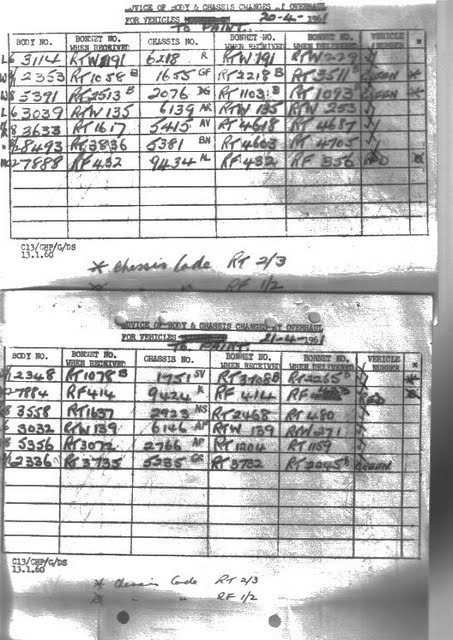 ADVICE OF BODY & CHASSIS CHANGES AT OVERHAUL
FOR VEHICLES 20-4-1961
TO PAINT.
BODY NO. BONNET NO. WHEN RECEIVED CHASSIS NO. BONNET NO. WHEN RECEIVED BONNET NO. WHEN DELIVERED VEHICLE NUMBER *
L6 3114 RTW 191 6218 R RTW 191 RTW 229 ✓
W8/2 2353 RT 1058 B 1655 GF RT 2218 B RT 3511 B GREEN *
W8 5391 RT 2513 B 2076 RT 1103 B RT 1093 B GREEN *
L6 3039 RTW 135 6139 AR RTW 135 RTW 253 ✓
3633 RT 1617 5415 AV RT 4618 RT 4687 ✓
8493 RT 3836 5381 BN RT 4603 RT 4705 ✓
7888 RF 432 9434 NL RF 432 RF 556 RED
C13/CHP/G/DS
13.1.60
* Chassis Code RT 2/3
" " RF 1/2
ADVICE OF BODY & CHASSIS CHANGES AT OVERHAUL
FOR VEHICLES 21-4-1961
TO PAINT.
BODY NO. BONNET NO. WHEN RECEIVED CHASSIS NO. BONNET NO. WHEN RECEIVED BONNET NO. WHEN DELIVERED VEHICLE NUMBER *
2348 RT 1078 B 1951 SV RT 3708 B RT 2265 B ✓ *
7884 RF 414 9424 K RF 414 RF RED
8 3558 RT 1637 2923 NS RT 2468 RT 480 ✓
6 3032 RTW 139 6146 AP RTW 139 RTW 271 ✓
8 5356 RT 3072 2766 AP RT 1204 RT 1159 ✓
2336 RT 3735 5235 GR RT 3782 RT 2045 GREEN
C13/CHP/G/DS
13.1.60
* Chassis Code RT 2/3
" " RF 1/2